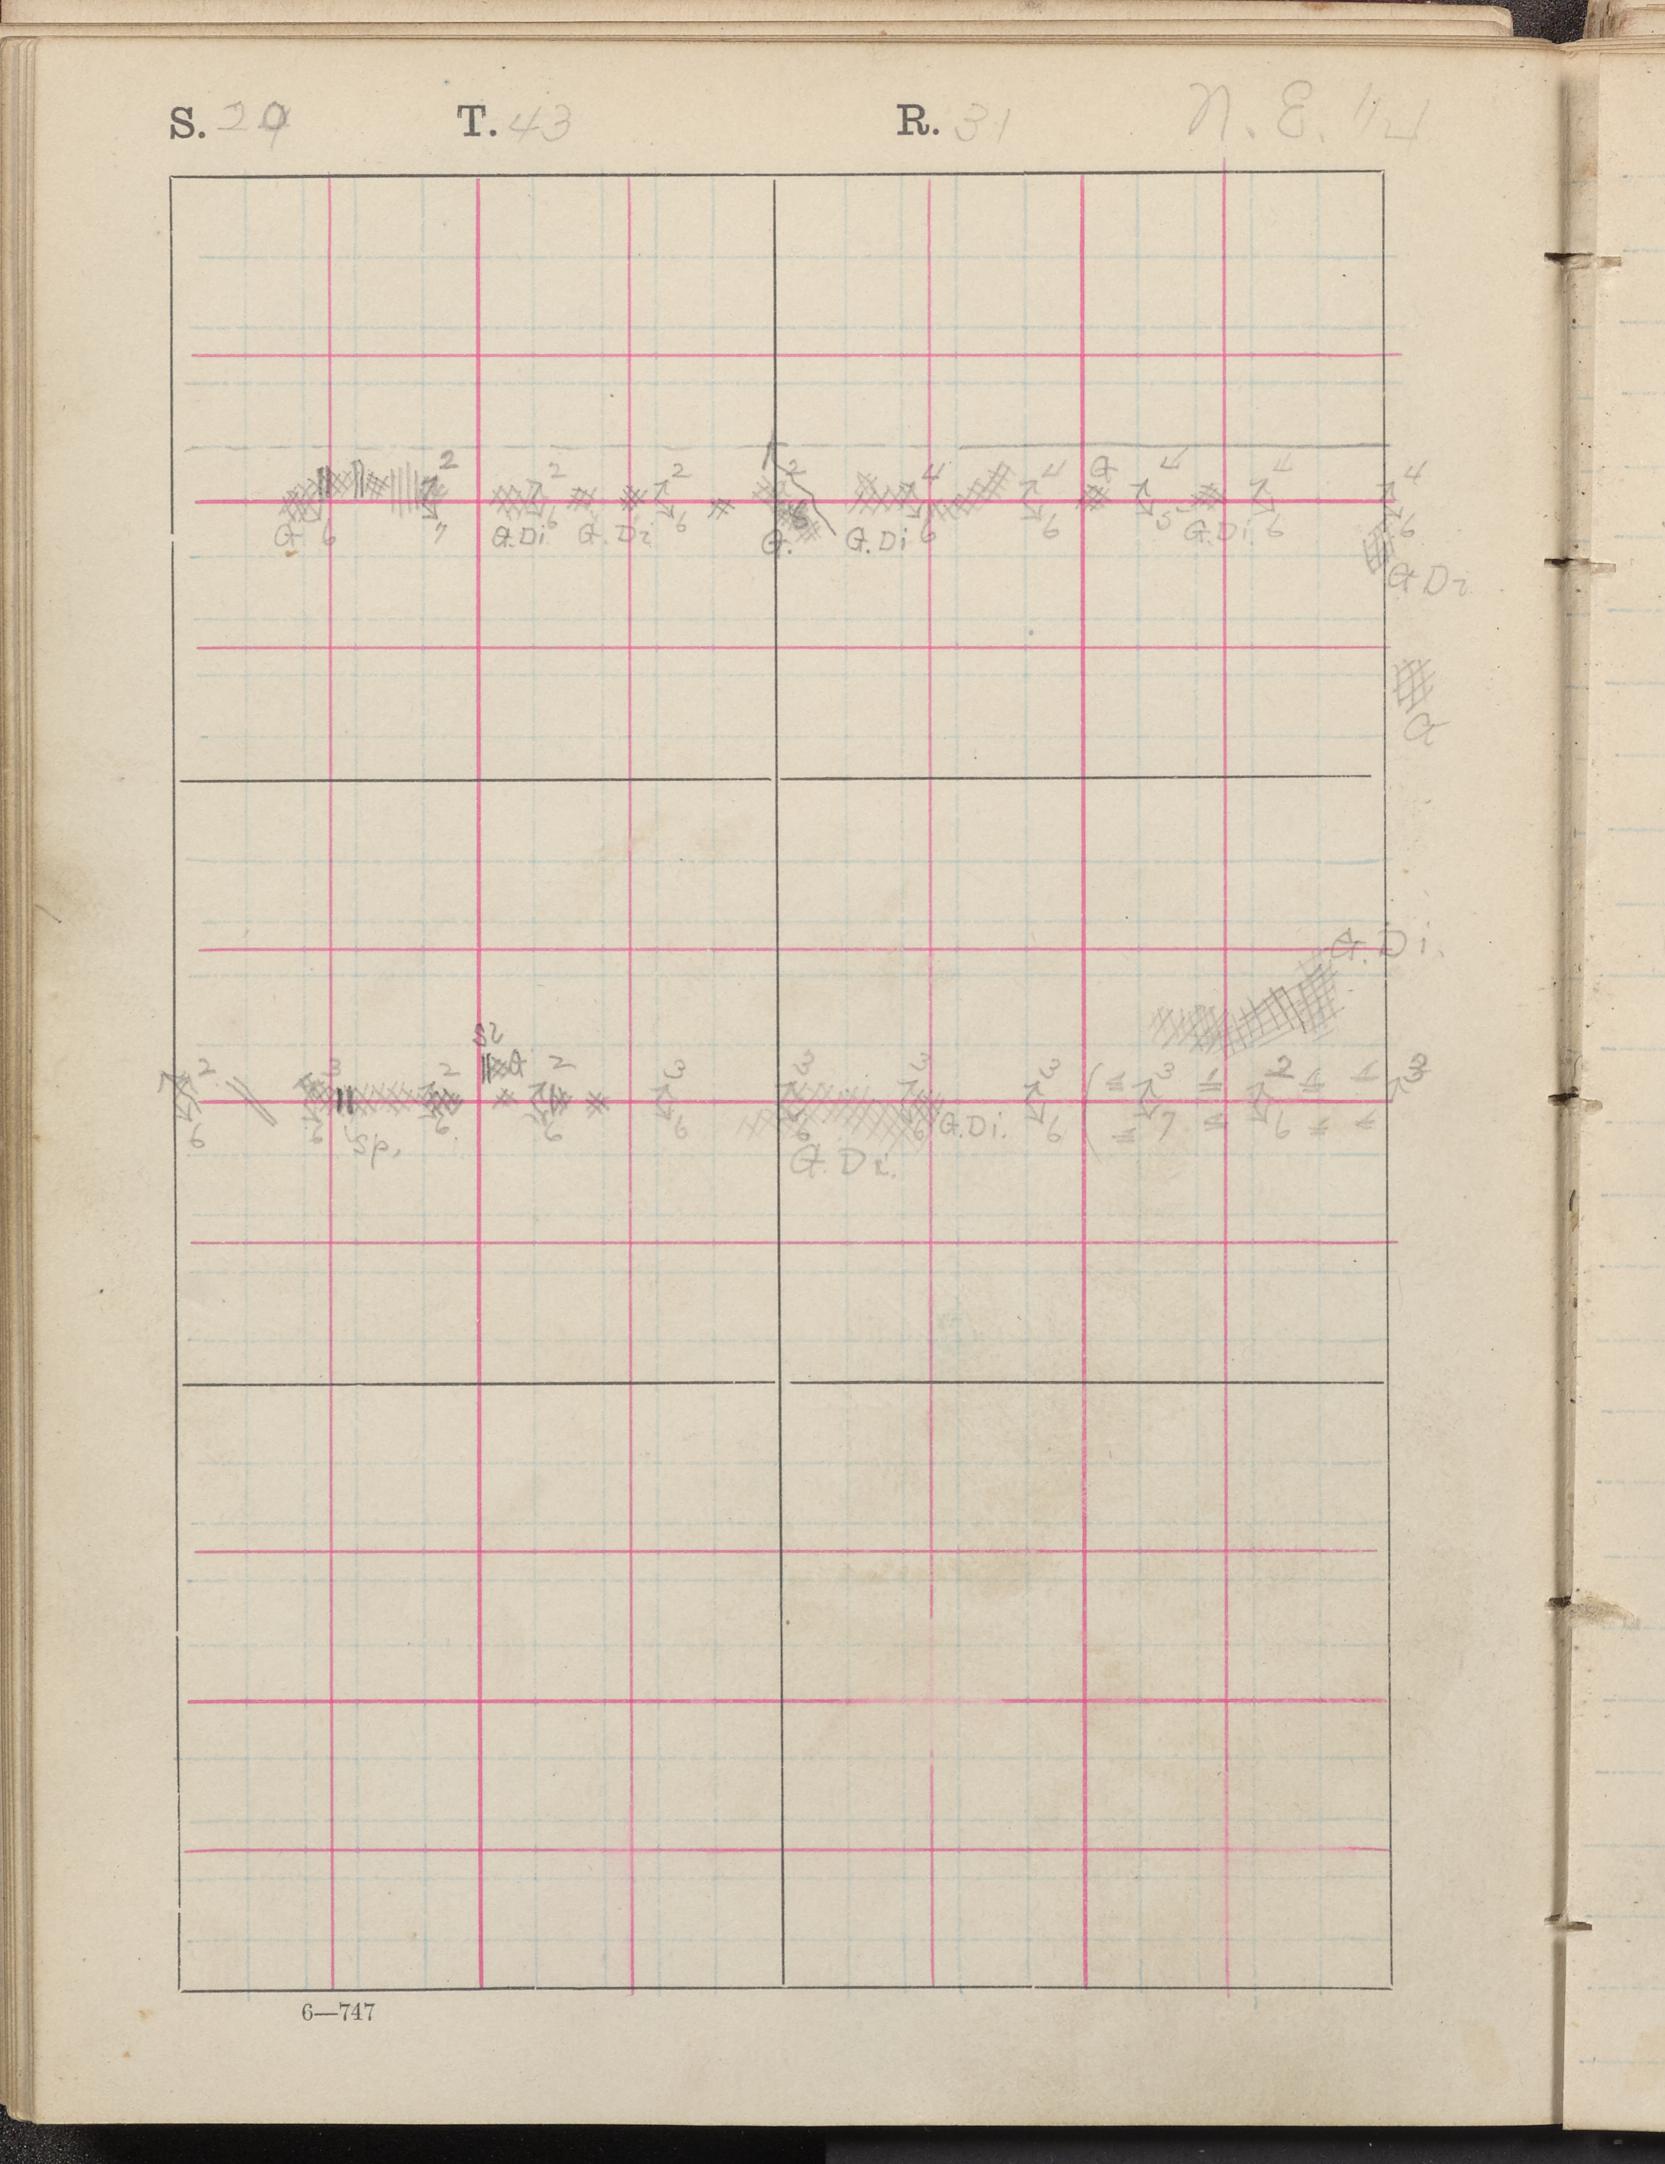 S. 29 T. 43 R. 31 N. E. 1/4
2 2 2 2 4 4 G 4 4 4
G 6 7 G.Di 6 G.Di 6 G. G.Di 6 6 5 G.Di 6 6
G Di
G
G.Di.
Sl
G
2 3 2 2 3 3 3 3 3 2 3
6 6 6 6 6 6 6 G.Di. 6 7 6
Sp.
G. Di.
6—747